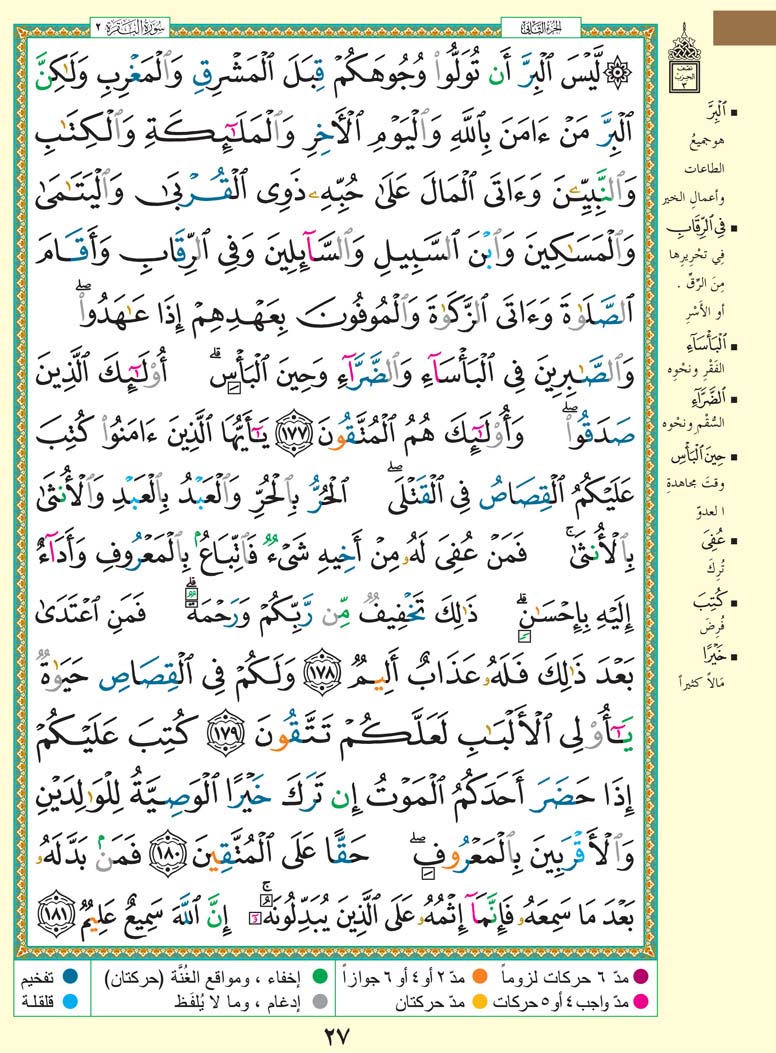 سُورَةُ البَقَرَة ٢
الجُزءُ الثَّانِي
نصف
الحزب
٣
۞ لَّيْسَ ٱلْبِرَّ أَن تُوَلُّوا۟ وُجُوهَكُمْ قِبَلَ ٱلْمَشْرِقِ وَٱلْمَغْرِبِ وَلَٰكِنَّ
ٱلْبِرَّ مَنْ ءَامَنَ بِٱللَّهِ وَٱلْيَوْمِ ٱلْأٓخِرِ وَٱلْمَلَٰٓئِكَةِ وَٱلْكِتَٰبِ
وَٱلنَّبِيِّۦنَ وَءَاتَى ٱلْمَالَ عَلَىٰ حُبِّهِۦ ذَوِى ٱلْقُرْبَىٰ وَٱلْيَتَٰمَىٰ
وَٱلْمَسَٰكِينَ وَٱبْنَ ٱلسَّبِيلِ وَٱلسَّآئِلِينَ وَفِى ٱلرِّقَابِ وَأَقَامَ
ٱلصَّلَوٰةَ وَءَاتَى ٱلزَّكَوٰةَ وَٱلْمُوفُونَ بِعَهْدِهِمْ إِذَا عَٰهَدُوا۟ ۖ
وَٱلصَّٰبِرِينَ فِى ٱلْبَأْسَآءِ وَٱلضَّرَّآءِ وَحِينَ ٱلْبَأْسِ ۗ أُو۟لَٰٓئِكَ ٱلَّذِينَ
صَدَقُوا۟ ۖ وَأُو۟لَٰٓئِكَ هُمُ ٱلْمُتَّقُونَ ﴿١٧٧﴾ يَٰٓأَيُّهَا ٱلَّذِينَ ءَامَنُوا۟ كُتِبَ
عَلَيْكُمُ ٱلْقِصَاصُ فِى ٱلْقَتْلَى ۖ ٱلْحُرُّ بِٱلْحُرِّ وَٱلْعَبْدُ بِٱلْعَبْدِ وَٱلْأُنثَىٰ
بِٱلْأُنثَىٰ ۚ فَمَنْ عُفِىَ لَهُۥ مِنْ أَخِيهِ شَىْءٌ فَٱتِّبَاعٌۢ بِٱلْمَعْرُوفِ وَأَدَآءٌ
إِلَيْهِ بِإِحْسَٰنٍ ۗ ذَٰلِكَ تَخْفِيفٌ مِّن رَّبِّكُمْ وَرَحْمَةٌ ۗ فَمَنِ ٱعْتَدَىٰ
بَعْدَ ذَٰلِكَ فَلَهُۥ عَذَابٌ أَلِيمٌ ﴿١٧٨﴾ وَلَكُمْ فِى ٱلْقِصَاصِ حَيَوٰةٌ
يَٰٓأُو۟لِى ٱلْأَلْبَٰبِ لَعَلَّكُمْ تَتَّقُونَ ﴿١٧٩﴾ كُتِبَ عَلَيْكُمْ
إِذَا حَضَرَ أَحَدَكُمُ ٱلْمَوْتُ إِن تَرَكَ خَيْرًا ٱلْوَصِيَّةُ لِلْوَٰلِدَيْنِ
وَٱلْأَقْرَبِينَ بِٱلْمَعْرُوفِ ۖ حَقًّا عَلَى ٱلْمُتَّقِينَ ﴿١٨٠﴾ فَمَنۢ بَدَّلَهُۥ
بَعْدَ مَا سَمِعَهُۥ فَإِنَّمَآ إِثْمُهُۥ عَلَى ٱلَّذِينَ يُبَدِّلُونَهُۥٓ ۚ إِنَّ ٱللَّهَ سَمِيعٌ عَلِيمٌ ﴿١٨١﴾
ٱلْبِرَّ
هو جميعُ
الطاعات
وأعمالِ الخير
فِي ٱلرِّقَابِ
فِي تحْرِيرِها
مِنَ الرِّقِّ .
أو الأَسْرِ
ٱلْبَأْسَآءِ
الفَقْرِ ونحْوِه
ٱلضَّرَّآءِ
السُّقْمِ ونحْوه
حِينَ ٱلْبَأْسِ
وقتَ مجاهدةِ
العدوّ
عُفِىَ
تُرِكَ
كُتِبَ
فُرِضَ
خَيْرًا
مَالاً كثيراً
مدّ ٦ حركات لزوماً
مدّ ٢ أو ٤ أو ٦ جوازاً
إخفاء ، ومواقع الغُنَّة (حركتان)
تفخيم
مدّ واجب ٤ أو ٥ حركات
مدّ حركتان
إدغام ، وما لا يُلفَظ
قلقلة
٢٧